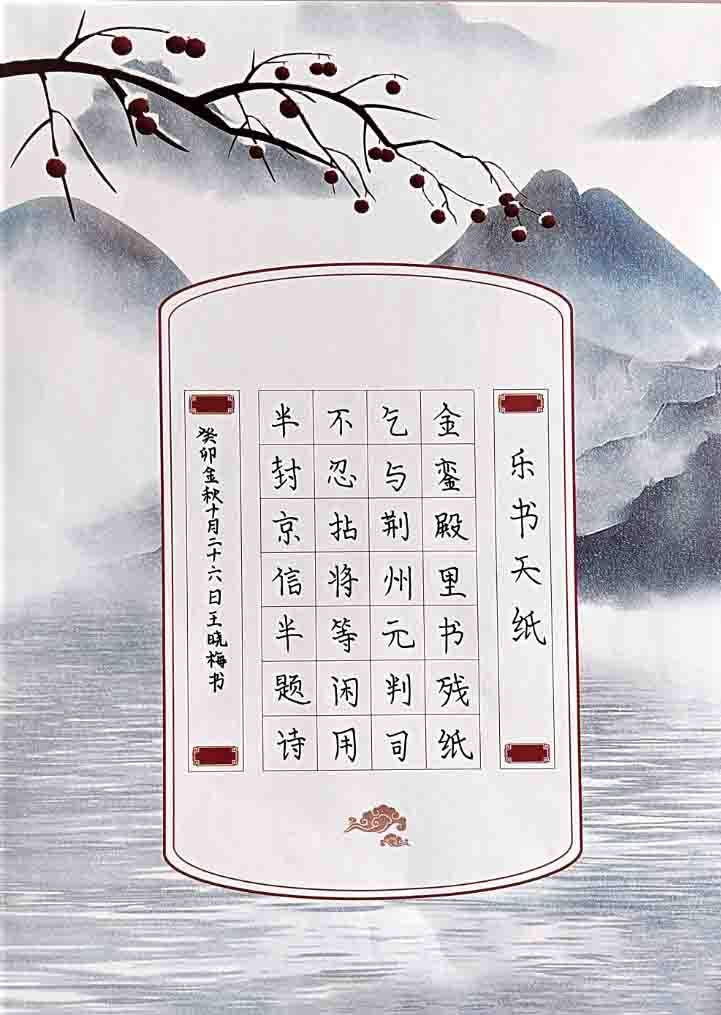 乐书天纸
金銮殿里书残纸
乞与荆州元判司
不忍拈将等闲用
半封京信半题诗
癸卯金秋十月二十六日王晓梅书